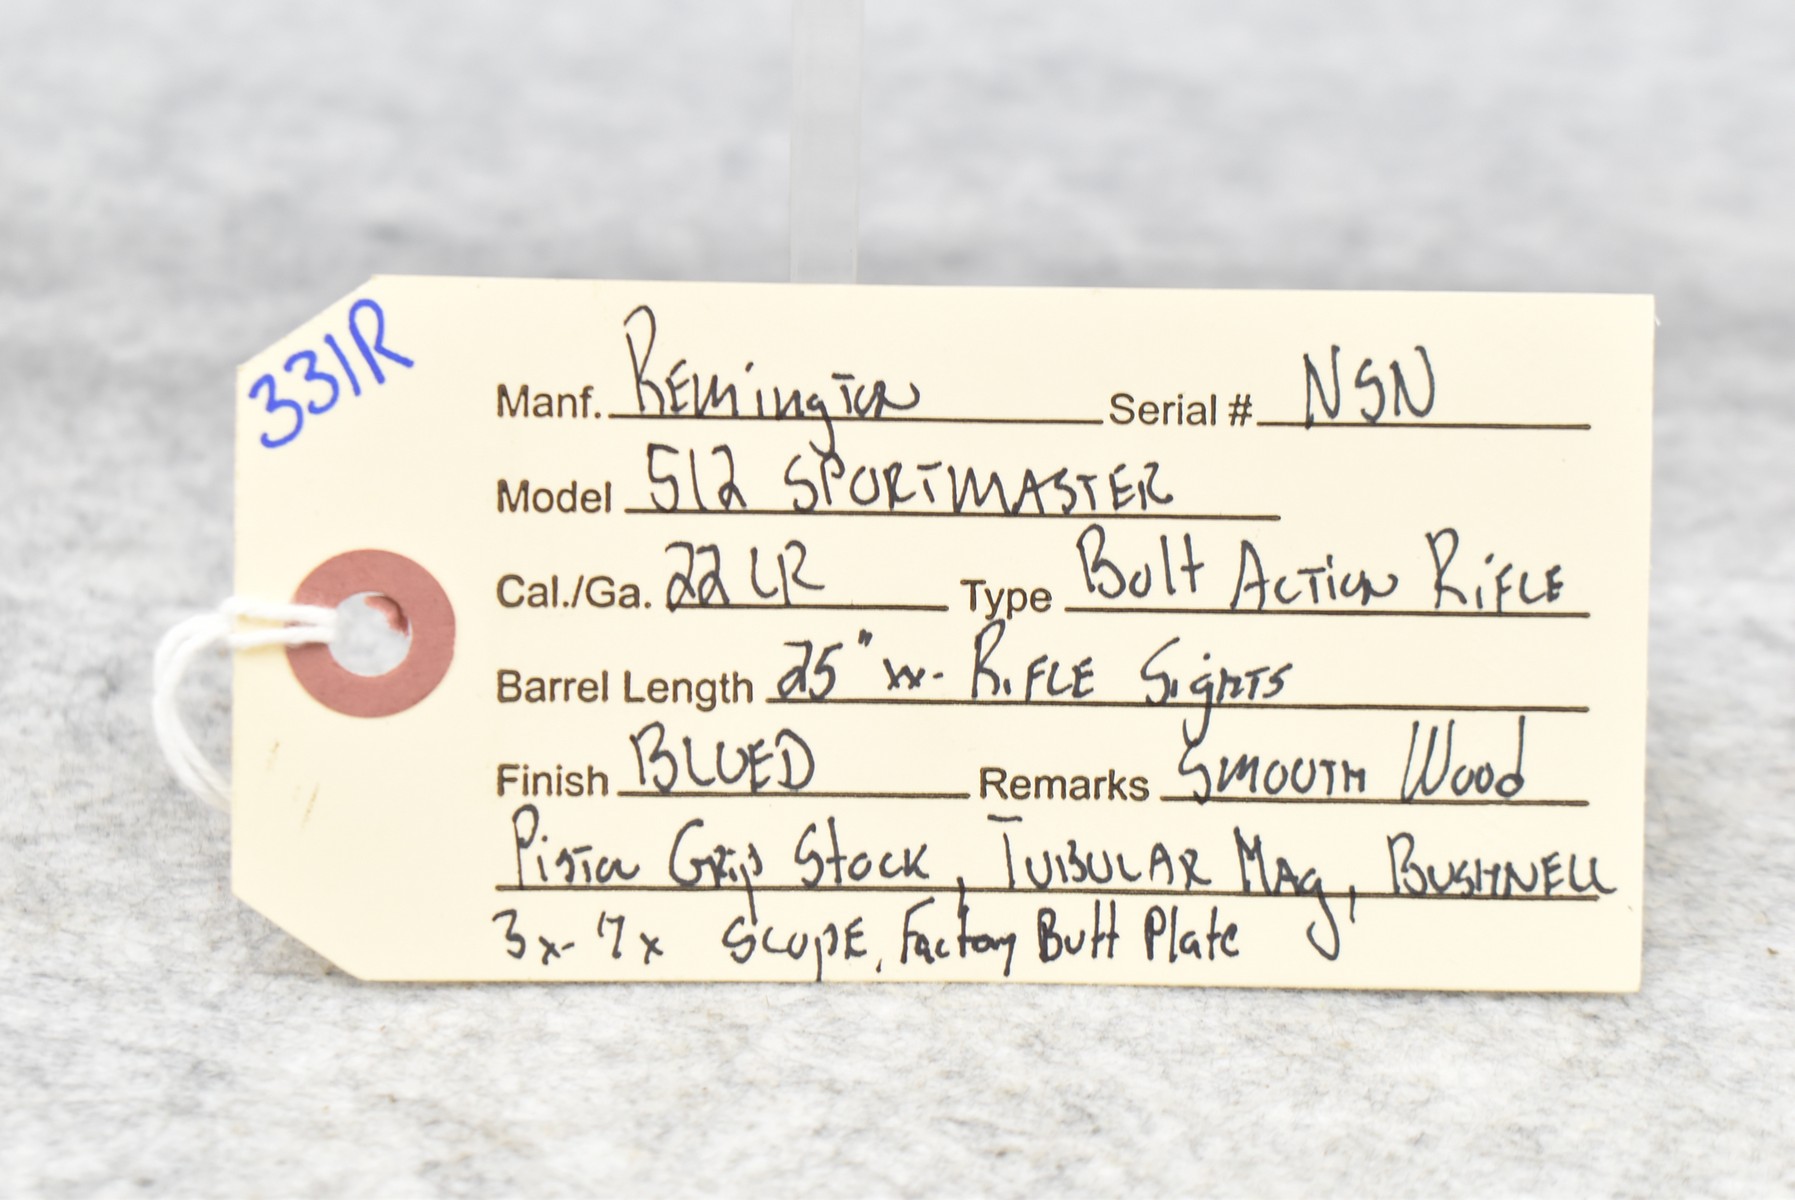 331R
Manf. Remington Serial # NSN
Model 512 SPORTMASTER
Cal./Ga. 22 LR Type Bolt Action Rifle
Barrel Length 25" w- Rifle Sights
Finish BLUED Remarks Smooth Wood
Pistol Grip Stock, Tubular Mag, Bushnell
3x-7x Scope, Factory Butt Plate